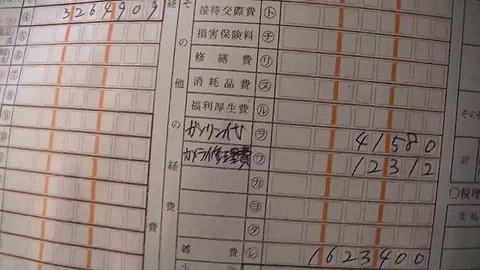 ④ 3264909
その他の経費
経費
接待交際費 ㋣
損害保険料 ㋠
修繕費 ㋷
消耗品費 ㋦
福利厚生費 ㋸
ガソリン代 ㋾ 41580
カメラ修理費 ㋻ 12312
㋕
㋵
㋟
雑費 ㋹ 1623400
その
計
〇税理
支払